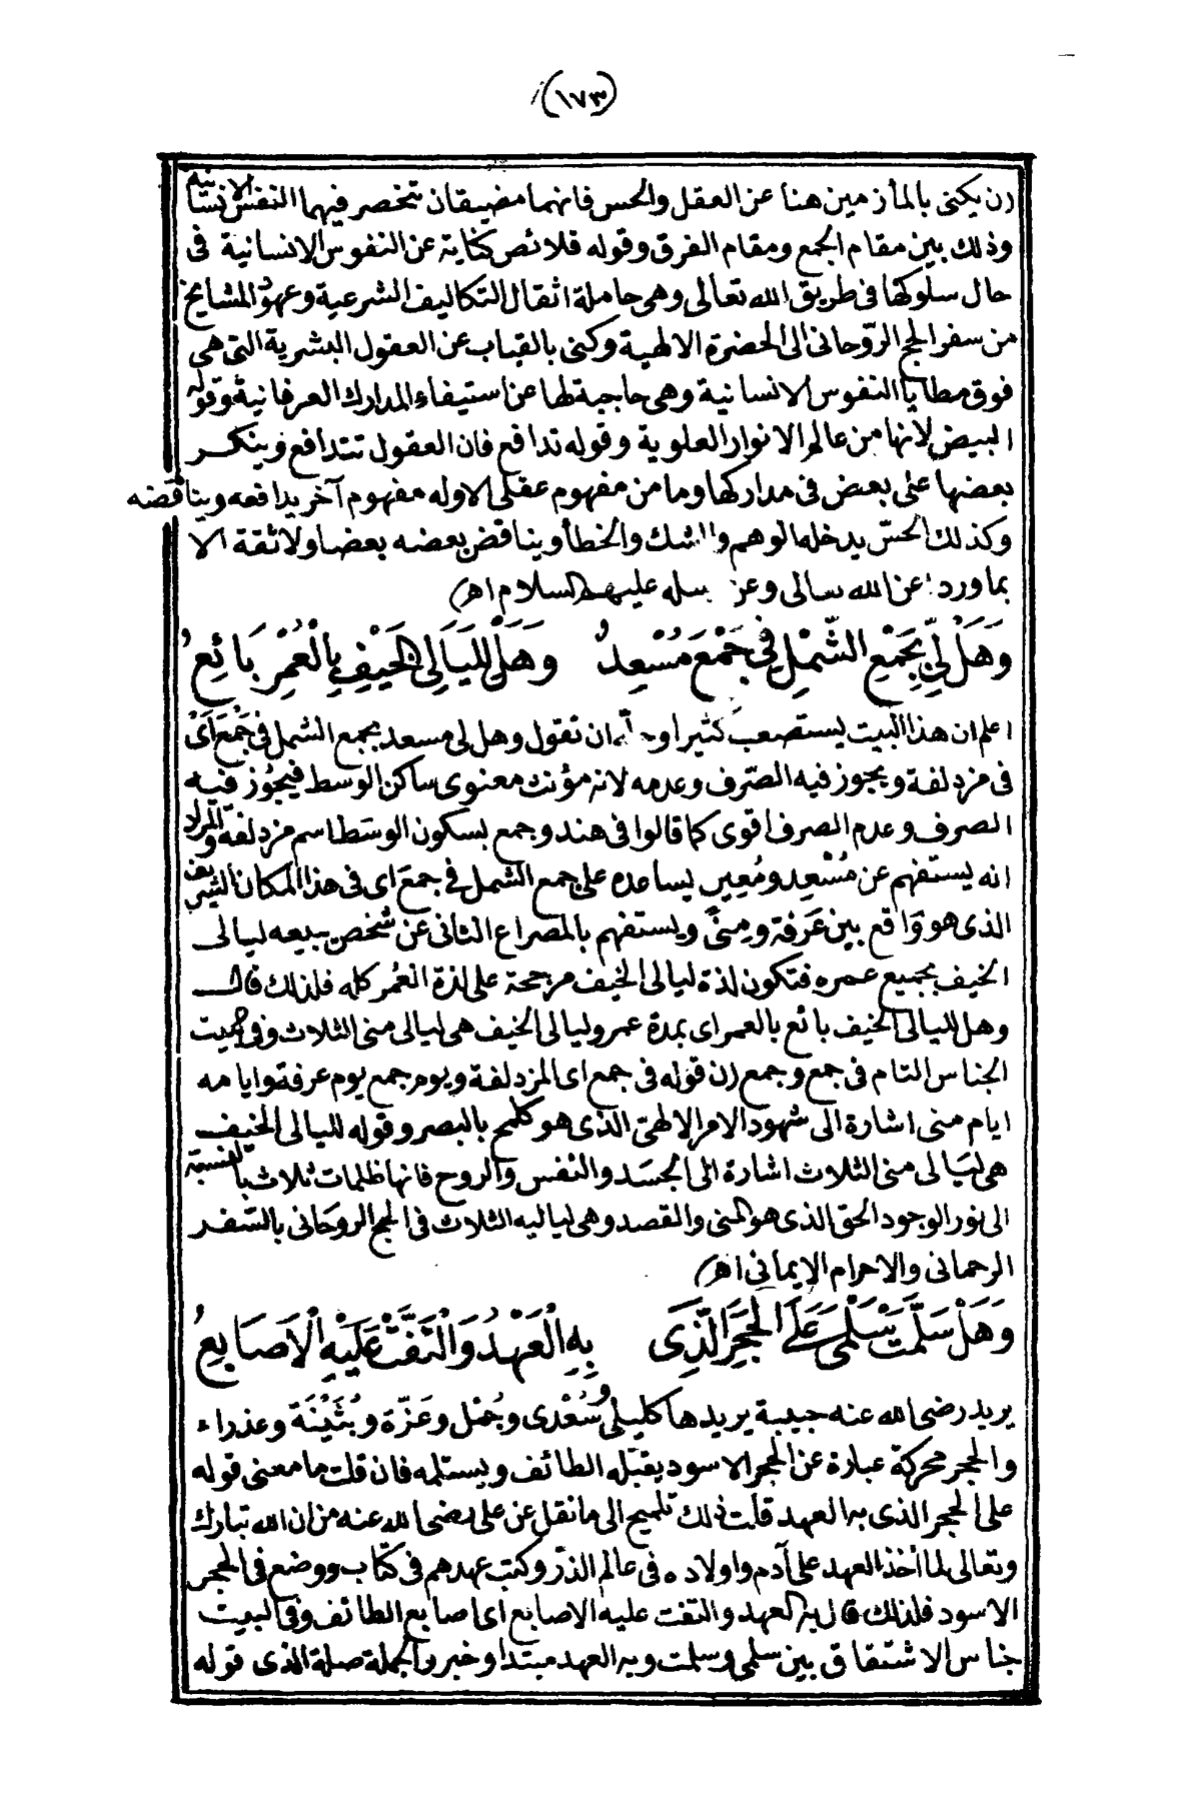 (١٧٣)
(ن يكنى بالمأزمين هنا عن العقل والحس فانهما مضيقان تنحصر فيهما النفس الانسانية
وذلك بين مقام الجمع ومقام الفرق وقوله قلائص كناية عن النفوس الانسانية فى
حال سلوكها فى طريق الله تعالى وهى حاملة اثقال التكاليف الشرعية وعهود المشايخ
من سفر الحج الروحانى الى الحضرة الالهية وكنى بالقباب عن العقول البشرية التى هى
فوق مطايا النفوس الانسانية وهى حاجبة لها عن استيفاء المدارك العرفانية وقوله
البيض لانها من عالم الانوار العلوية وقوله تدافع فان العقول تتدافع وينكر
بعضها على بعض فى مداركها وما من مفهوم عقلى الا وله مفهوم آخر يدافعه ويناقضه
وكذلك الحسّ يدخله الوهم والشك والخطأ ويناقض بعضه بعضا ولا ثقة الا
بما ورد عن الله تعالى وعن رسله عليهم السلام اه)
وَهَلْ لِّي بِجَمْعِ الشَّمْلِ فِي جَمْعَ مُسْعِدٌ وَهَلْ لِلَيَالِى الْخَيْفِ بِالْعُمْرِ بَائِعُ
اعلم ان هذا البيت يستصعب كثيرا ان تقول وهل لى مسعد بجمع الشمل فى جَمْعَ اَىْ
فى مزدلفة ويجوز فيه الصّرف وعدمه لانه مؤنث معنوى ساكن الوسط فيجُوز فيه
الصرف وعدم الصرف اقوى كما قالوا فى هند وجمع بسكون الوسَط اسم مزدلفة والمراد
انه يستفهم عن مُسْعِد ومُعِين يساعده على جمع الشمل فى جمعَ اى فى هذا المكان الشريف
الذى هو وَاقع بين عَرَفة ومِنىً ويستفهم بالمصراع الثانى عن شخص يبيعه ليالى
الخيف بجميع عمره فتكون لذة ليالى الخيف مرجحة على لذة العُمر كله فلذلك قال
وهل لليالى الخيف بائع بالعمر اى بمدة عمر وليالى الخيف هى ليالى منى الثلاث وفى البيت
الجناس التام فى جمع وجمع (ن قوله فى جمع اى المزدلفة ويوم جمع يوم عرفة وايامه
ايام منى اشارة الى شهود الامر الالهىّ الذى هو كلمح بالبصر وقوله لليالى الخيف
هى ليَالى منى الثلاث اشارة الى الجسَد والنفس والروح فانها ظلمات ثلاث بالنسبة
الى نور الوجود الحق الذى هو المنى والمقصد وهى لياليه الثلاث فى الحج الروحَانى بالسّفر
الرحمانى والاحرام الايمانِى اه)
وَهَلْ سَلَّمَتْ سَلْمَى عَلَى الْحَجَرِ الَّذِى بِهِ الْعَهْدُ وَالْتَفَّتْ عَلَيْهِ الْاَصَابِعُ
يريد رضى الله عنه حبيبة يريدها كليلى وسُعْدى وجُمْل وعَزّة وبُثَيْنَة وعذراء
والحجر محركة عبارة عن الحجر الاسود يقبّله الطائف ويستلمه فان قلت ما معنى قوله
على الحجر الذى به العهد قلت ذلك تلميح الى ما نقل عن على رضى الله عنه من ان الله تبارك
وتعالى لما أخذ العهد على آدم واولاده فى عالم الذرّ وكتب عهدهم فى كتاب ووضع فى الحجر
الاسود فلذلك قال به العهد والتفت عليه الاصابع اى اصابع الطائف وفى البيت
جناس الاشتقاق بين سلمى وسلمت وبه العهد مبتدا وخبر والجملة صلة الذى قوله